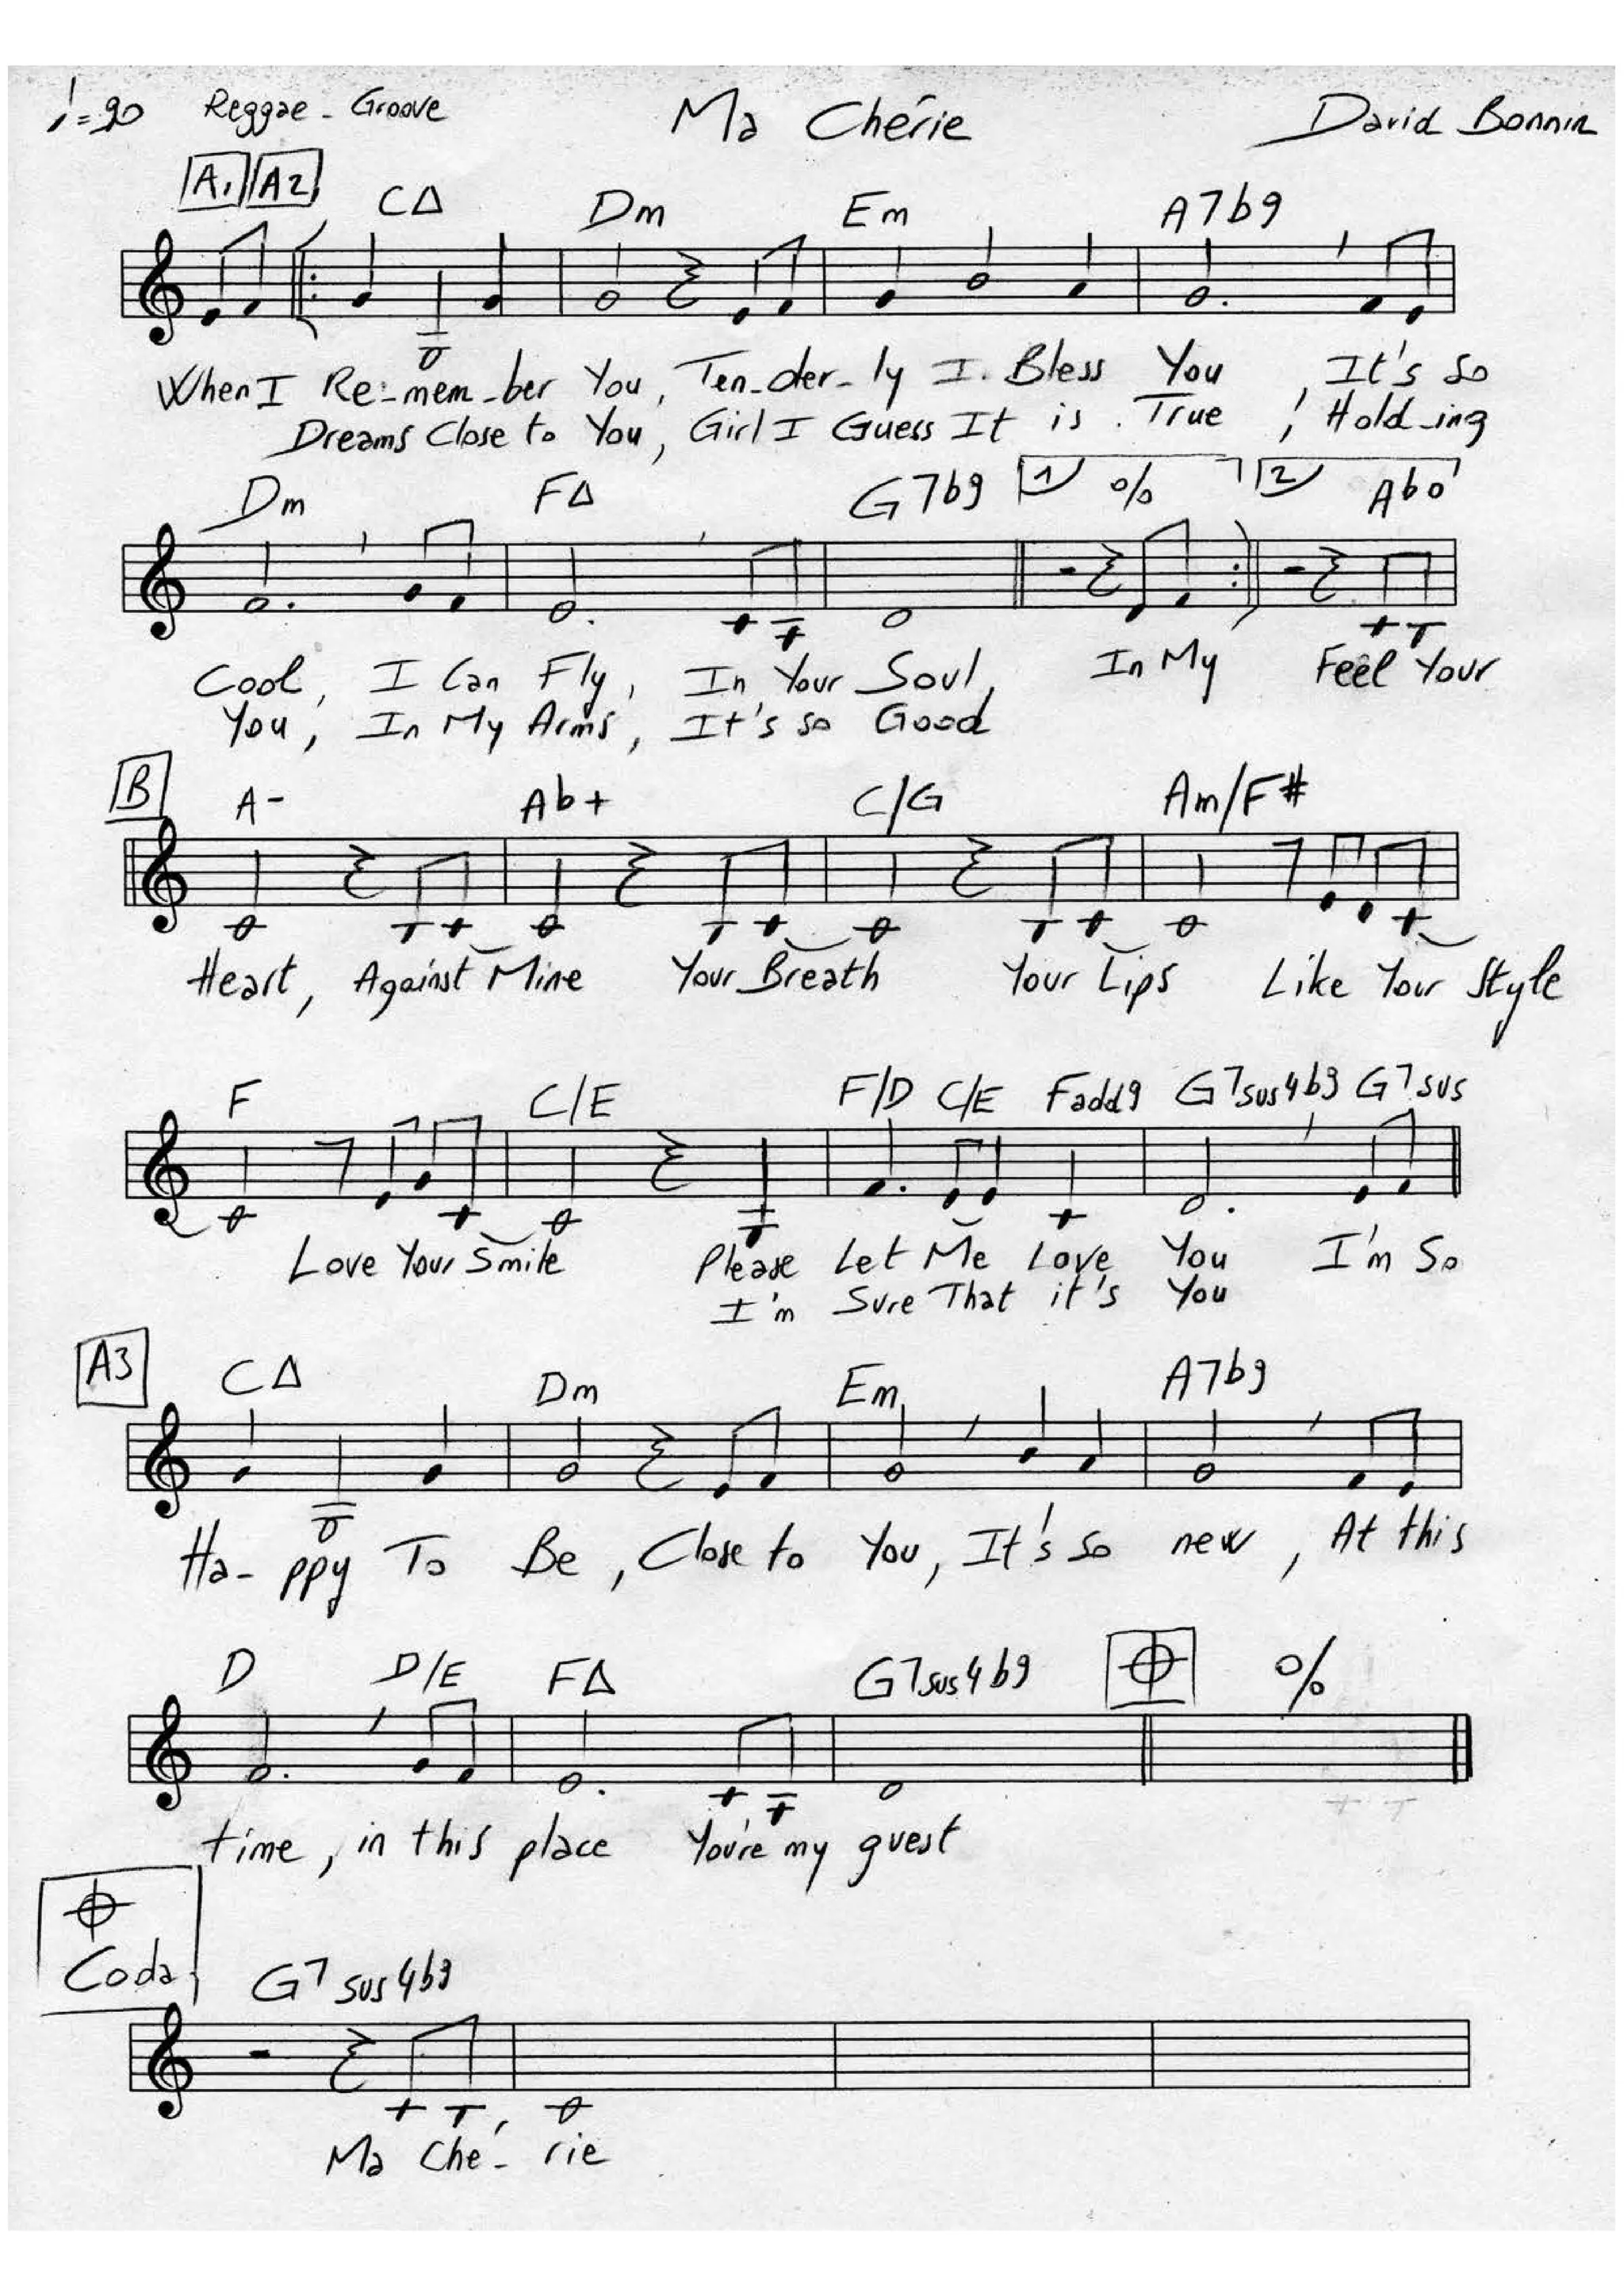 ♩=90 Reggae - Groove Ma Chérie David Bonnin
A1 A2
CΔ Dm Em A7b9
When I Re-mem-ber You, Ten-der-ly I Bless You, It's so
Dreams Close to You, Girl I Guess It is True, Hold-ing
Dm FΔ G7b9 1 % 2 Abo
Cool, I Can Fly, In Your Soul, In My Feel Your
You, In My Arms, It's so Good
B A- Ab+ C/G Am/F#
Heart, Against Mine Your Breath Your Lips Like Your Style
F C/E F/D C/E Fadd9 G7sus4b9 G7sus
Love Your Smile Please Let Me Love You I'm So
I'm Sure That it's You
A3 CΔ Dm Em A7b9
Ha-ppy To Be, Close to You, It's so new, At this
D D/E FΔ G7sus4b9 %
time, in this place You're my guest
Coda G7sus4b9
Ma Ché-rie